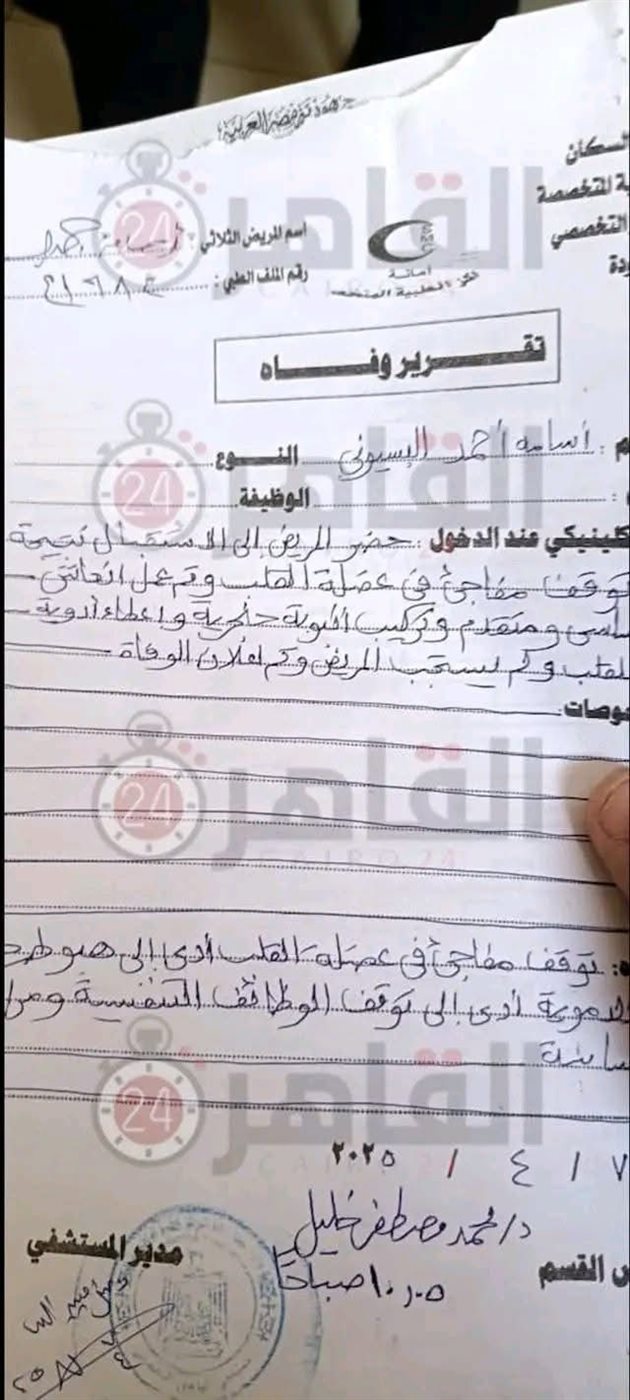 جمهورية مصر العربية
السكان
ية المتخصصة
التخصصي
ودة
اسم المريض الثلاثي : أسامة أحمد
رقم الملف الطبي :
أمانة
المراكز الطبية المتخصصة
تقرير وفاه
م : أسامه أحمد البسيوني النوع
: الوظيفة
كلينيكي عند الدخول : حضر المريض إلى الاستقبال نتيجة
توقف مفاجئ في عضلة القلب وتم عمل انعاش
أساسي ومتقدم وتركيب أنبوبة حنجرية واعطاء أدوية
للقلب ولم يستجب المريض وتم اعلان الوفاة
حوصات :
ه : توقف مفاجئ في عضلة القلب أدى إلى هبوط
الدموية أدى إلى توقف الوظائف التنفسية
٧ / ٤ / ٢٠٢٥
د/ محمد مصطفى خليل
١٠,٠٥ صباحًا
س القسم
مدير المستشفي
القاهرة 24
CAIRO 24